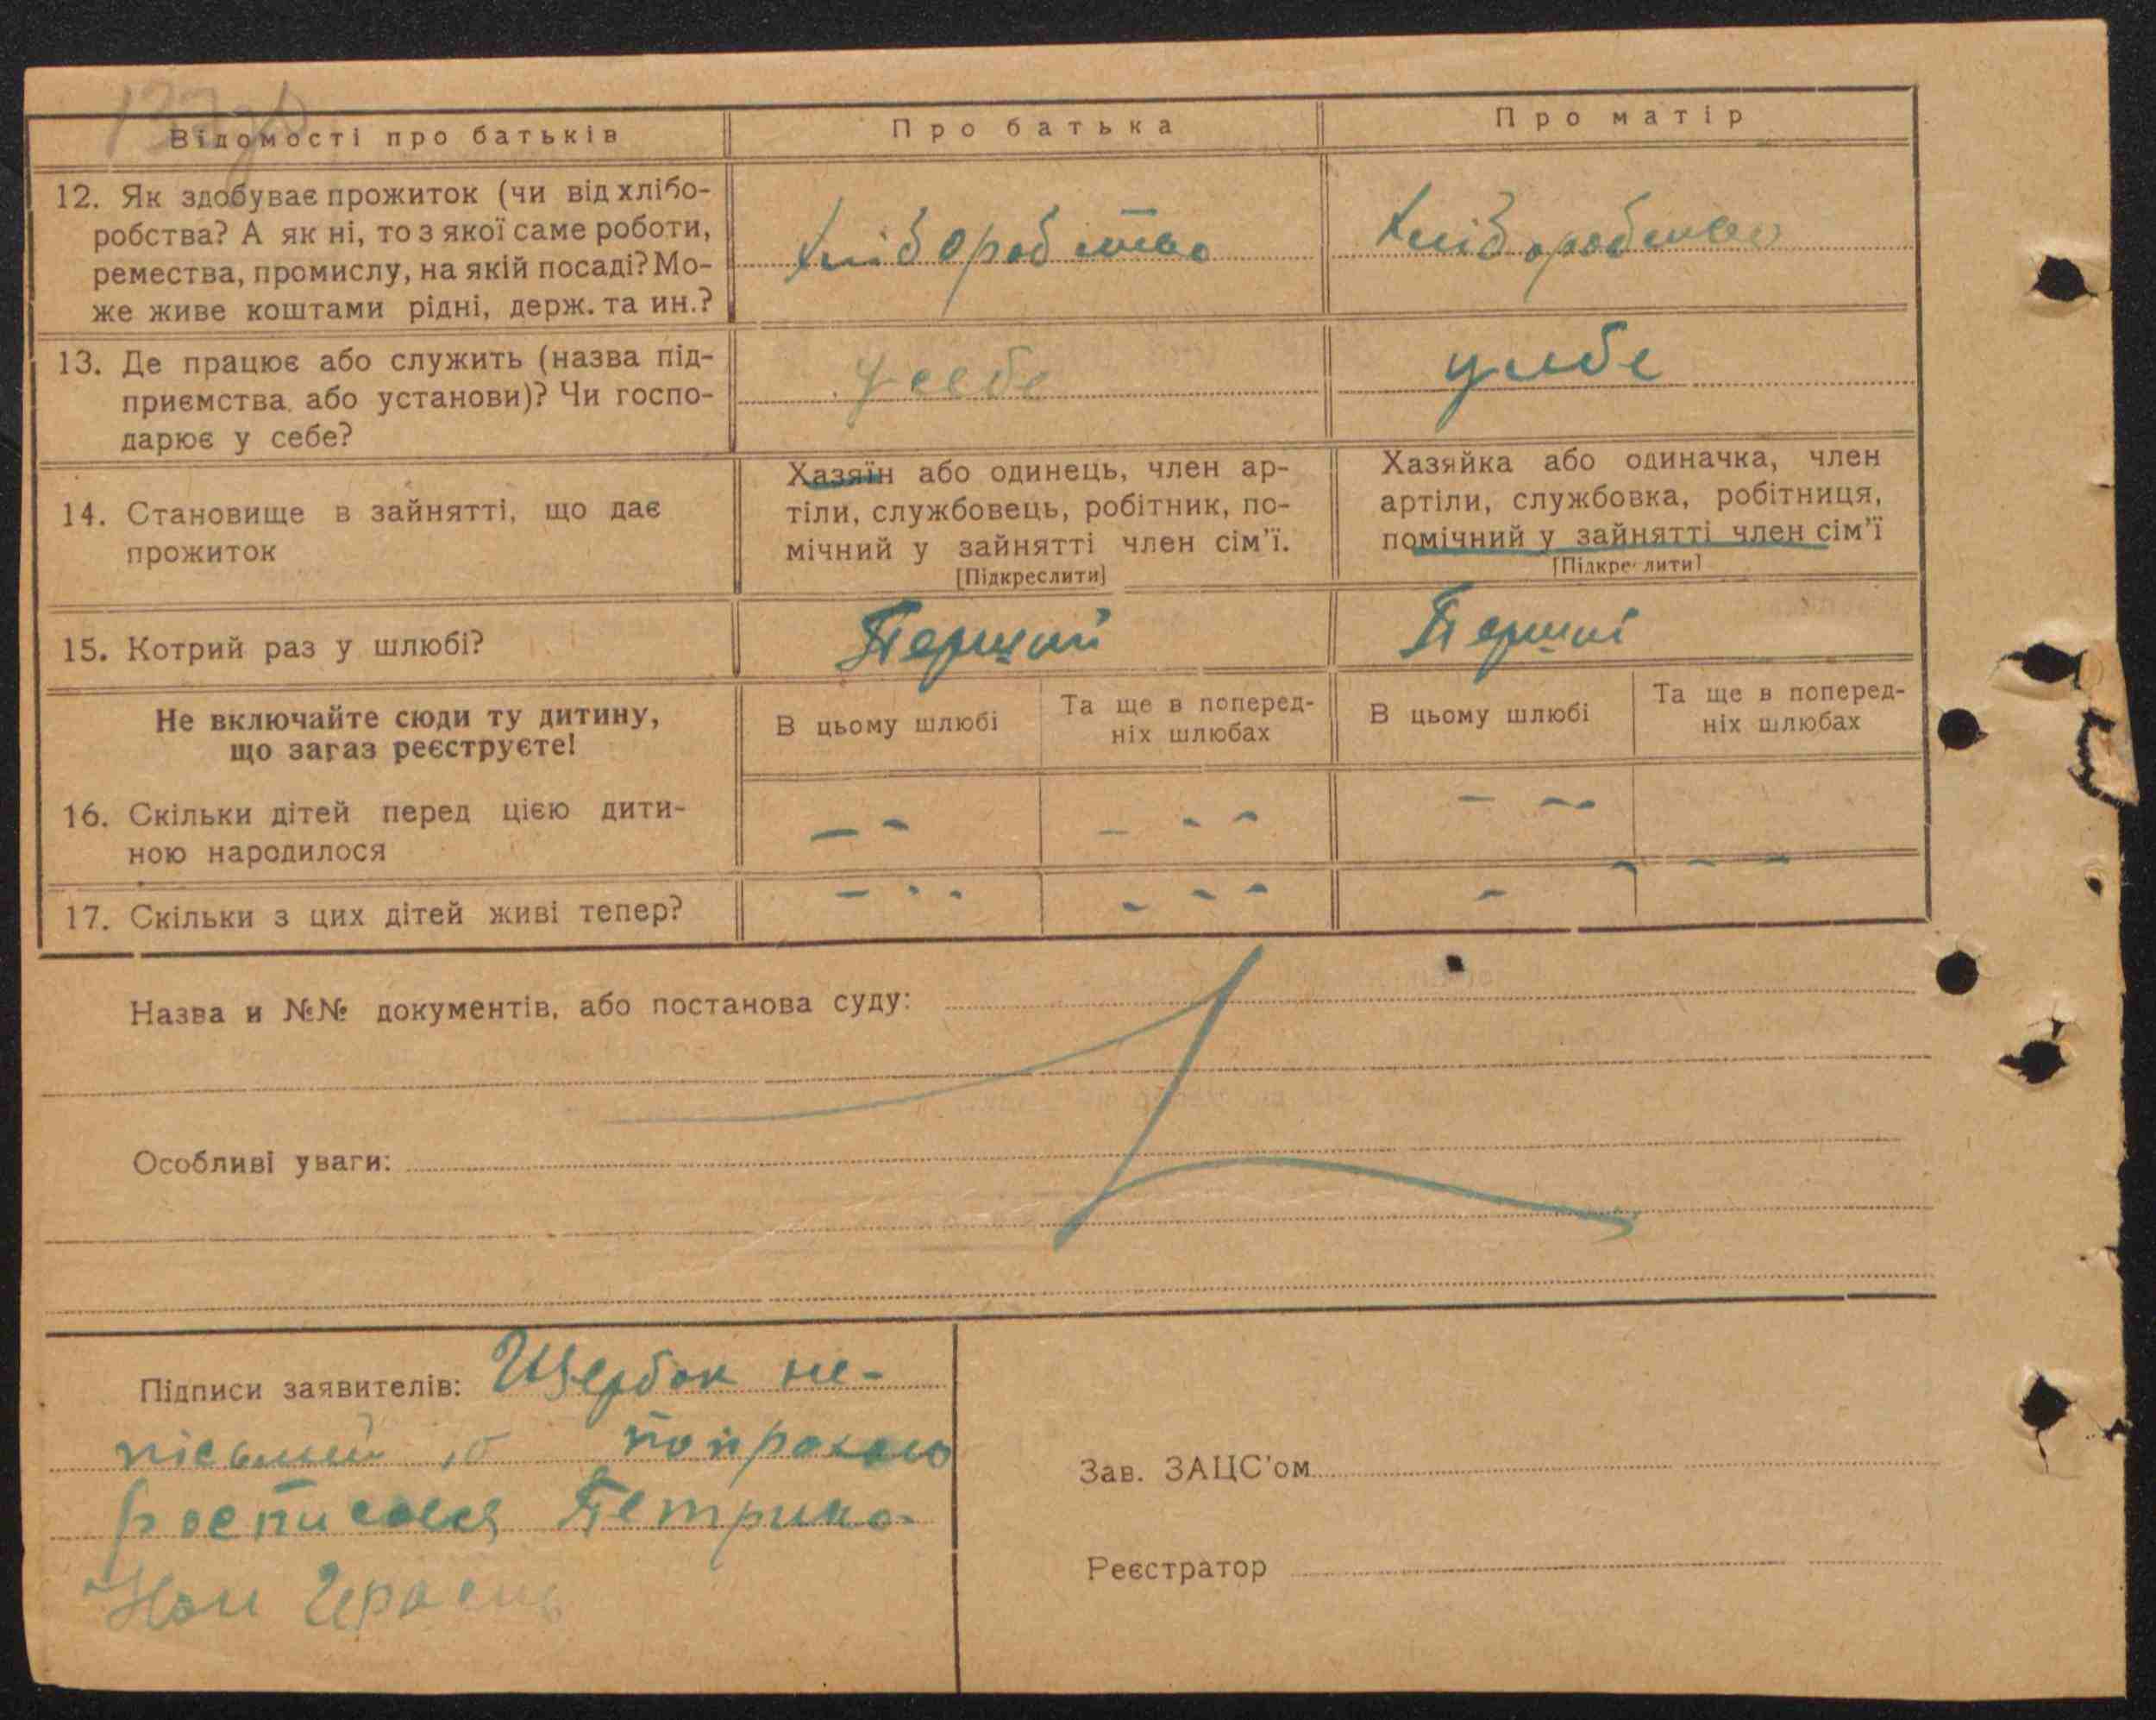 Відомості про батьків
Про батька
Про матір
12. Як здобуває прожиток (чи від хлібо-
робства? А як ні, то з якої саме роботи,
ремества, промислу, на якій посаді? Мо-
же живе коштами рідні, держ. та ин.?
Хліборобство
Хліборобство
13. Де працює або служить (назва під-
приємства або установи)? Чи госпо-
дарює у себе?
у себе
у себе
14. Становище в зайнятті, що дає
прожиток
Хазяїн або одинець, член ар-
тіли, службовець, робітник, по-
мічний у зайнятті член сім'ї.
[Підкреслити]
Хазяйка або одиначка, член
артіли, службовка, робітниця,
помічний у зайнятті член сім'ї
[Підкреслити]
15. Котрий раз у шлюбі?
Перший
Перший
Не включайте сюди ту дитину,
що зараз реєструєте!
В цьому шлюбі
Та ще в поперед-
ніх шлюбах
В цьому шлюбі
Та ще в поперед-
ніх шлюбах
16. Скільки дітей перед цією дити-
ною народилося
– –
– – –
– –
17. Скільки з цих дітей живі тепер?
– – –
– – –
–
– – –
Назва и №№ документів, або постанова суду:
Особливі уваги:
Підписи заявителів: Щербак не-
письмен
росписався
Зав. ЗАЦС'ом
Реєстратор